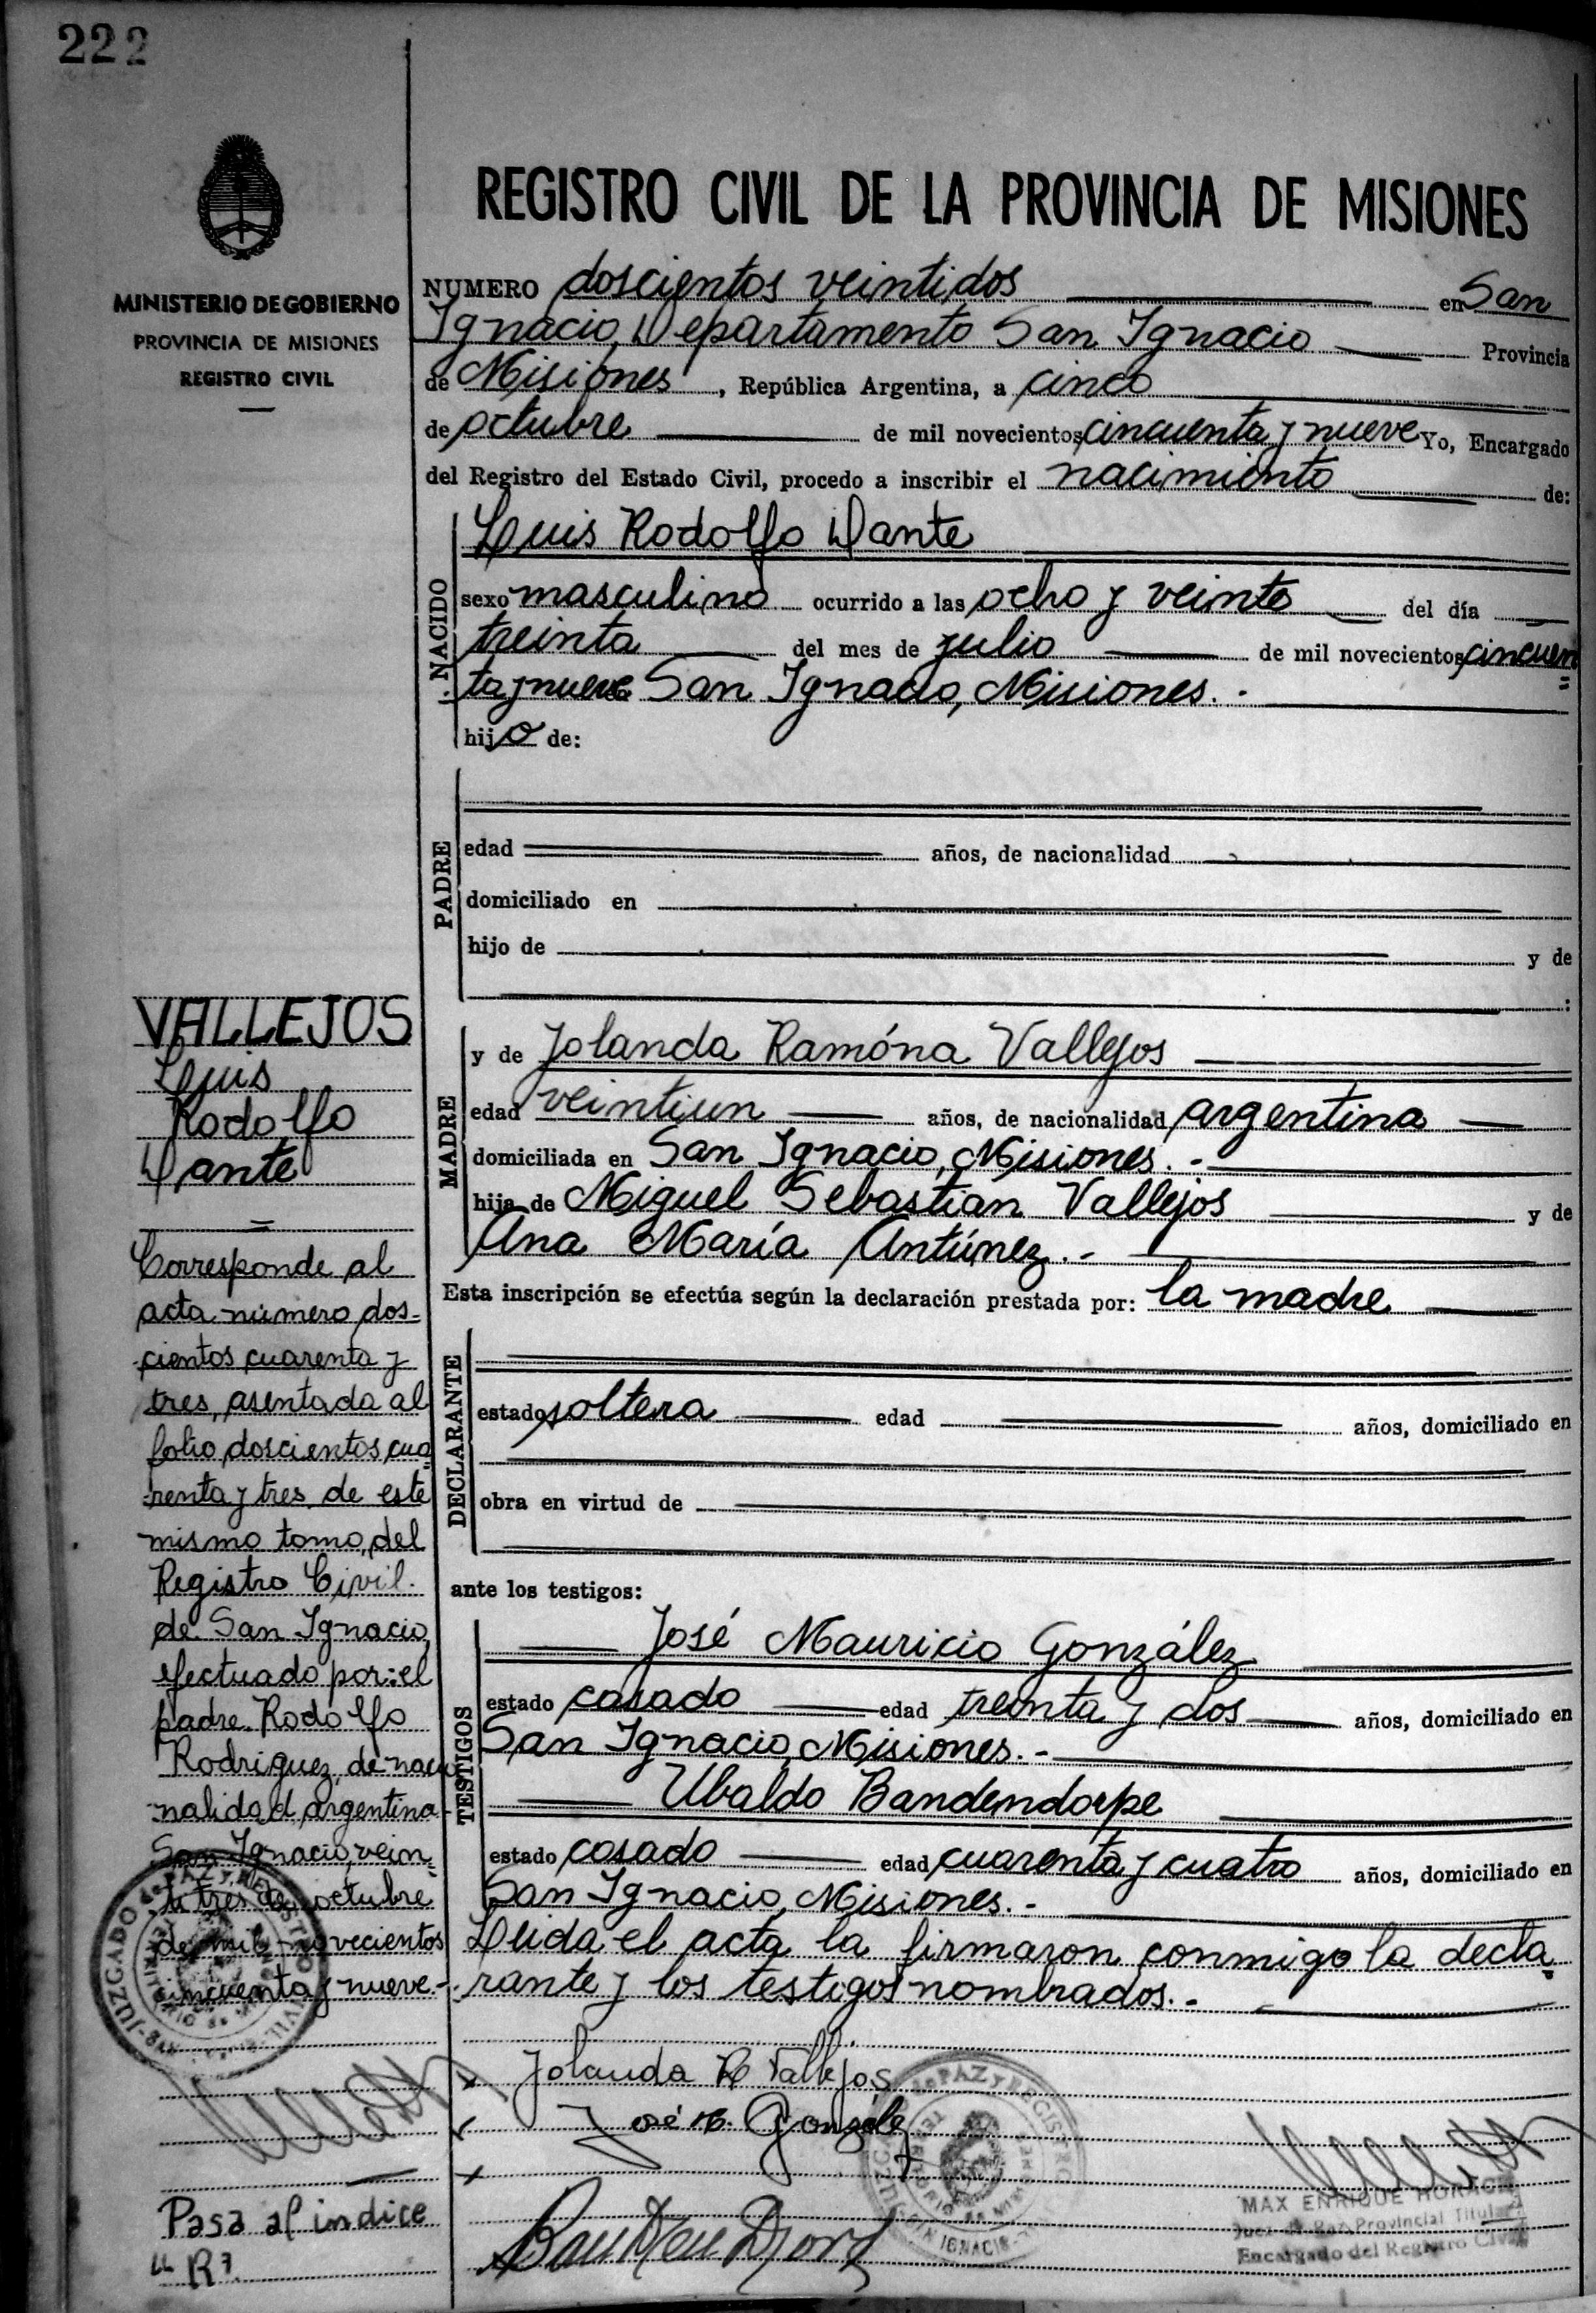 222
MINISTERIO DE GOBIERNO
PROVINCIA DE MISIONES
REGISTRO CIVIL
REGISTRO CIVIL DE LA PROVINCIA DE MISIONES
NUMERO doscientos veintidos en San
Ignacio, Departamento San Ignacio Provincia
de Misiones, República Argentina, a cinco
de octubre de mil novecientos cincuenta y nueve Yo, Encargado
del Registro del Estado Civil, procedo a inscribir el nacimiento de:
NACIDO
Luis Rodolfo Dante
sexo masculino ocurrido a las ocho y veinte del día
treinta del mes de julio de mil novecientos cincuen
ta y nueve San Ignacio, Misiones.-
hijo de:
PADRE
edad años, de nacionalidad
domiciliado en
hijo de y de
:
MADRE
y de Jolanda Ramóna Vallejos
edad veintiun años, de nacionalidad argentina
domiciliada en San Ignacio, Misiones.-
hija de Miguel Sebastián Vallejos y de
Ana María Antúnez.-
Esta inscripción se efectúa según la declaración prestada por: la madre
DECLARANTE
estado soltera edad años, domiciliado en
obra en virtud de
ante los testigos:
TESTIGOS
José Mauricio González
estado casado edad treinta y dos años, domiciliado en
San Ignacio, Misiones.-
Ubaldo Bandendorpe
estado casado edad cuarenta y cuatro años, domiciliado en
San Ignacio, Misiones.-
Leida el acta la firmaron conmigo la decla
rante y los testigos nombrados.-
Jolanda R Vallejos
José M. González
MAX ENRIQUE HORACIO
Juez de Paz Provincial Titular
Encargado del Registro Civil
VALLEJOS
Luis
Rodolfo
Dante
Corresponde al
acta número dos-
cientos cuarenta y
tres, asentada al
folio doscientos cua
renta y tres de este
mismo tomo, del
Registro Civil.
de San Ignacio,
efectuado por: el
padre Rodolfo
Rodriguez, de nacio
nalidad argentina
San Ignacio, vein
ti tres de octubre
de mil novecientos
cincuenta y nueve.-
Pasa al indice
"R".